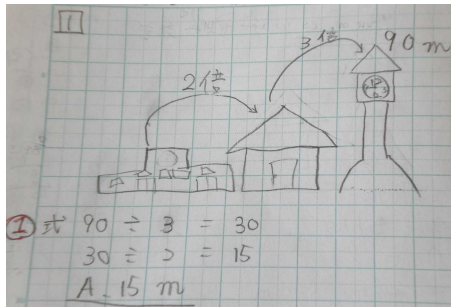 1
3倍 90 m
2倍
① 式 90 ÷ 3 = 30
30 ÷ 2 = 15
A. 15 m